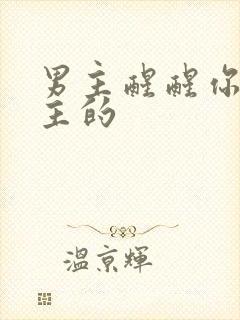 男主醒醒你
主的
溫京輝